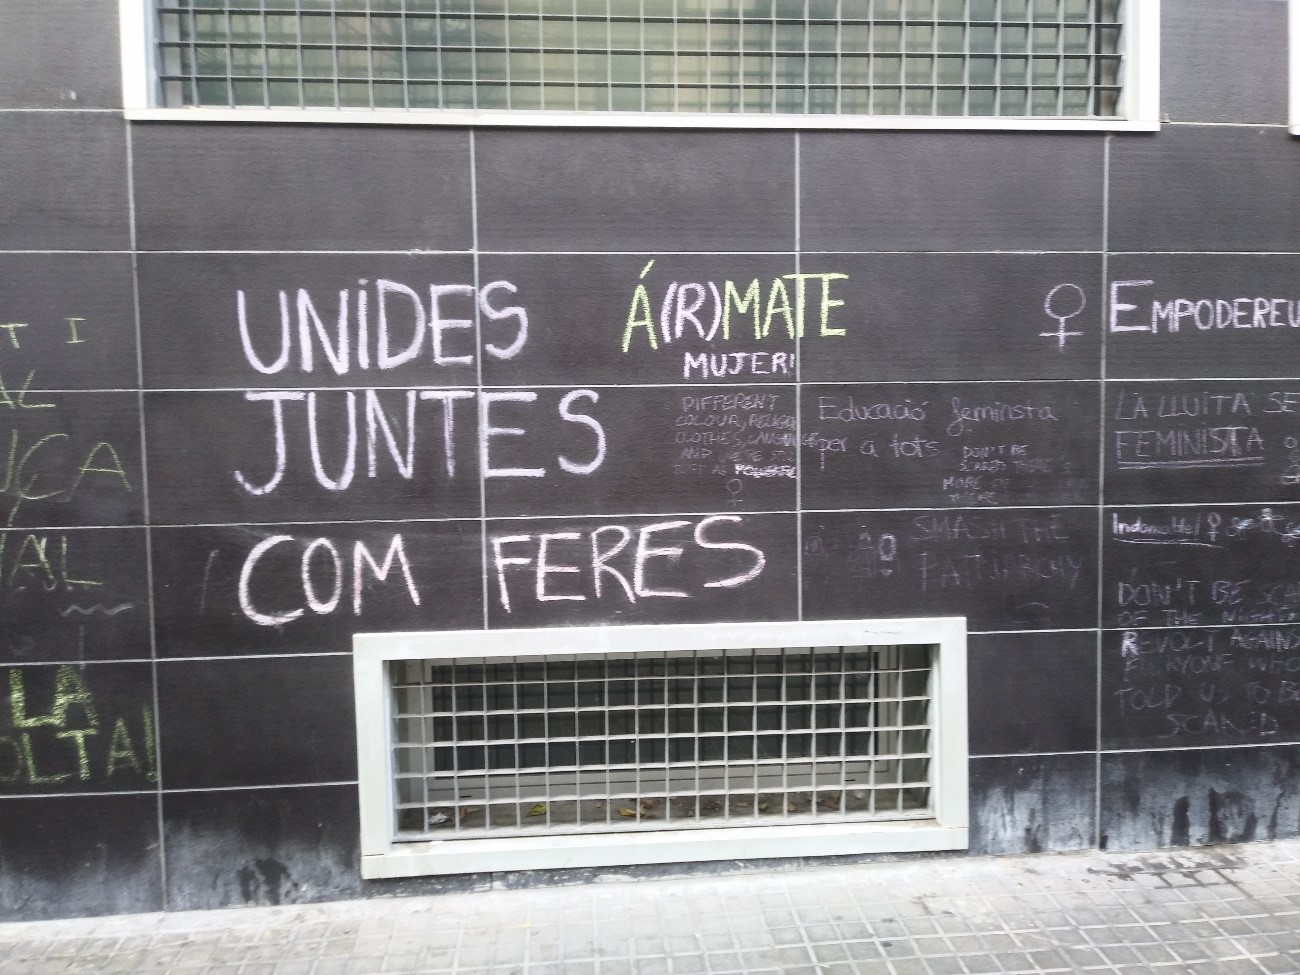 T I
AL
LA
OLTA!
UNIDES
JUNTES
COM FERES
Á(R)MATE
MUJER!
DIFFERENT
COLOUR, RELIGIO
CLOTHES, LANGUAGE
AND WE'RE STILL
JUST AS POWERFUL
♀
Educació feminsta
per a tots
DON'T BE
SCARED THERE'S
MORE OF
THERE
SMASH THE
PATRIARCHY
♀ EMPODEREU
LA LLUITA SE
FEMINISTA
Indomable! ♀
DON'T BE SCA
OF THE
REVOLT AGAINS
EVERYONE WHO
TOLD US TO BE
SCARED